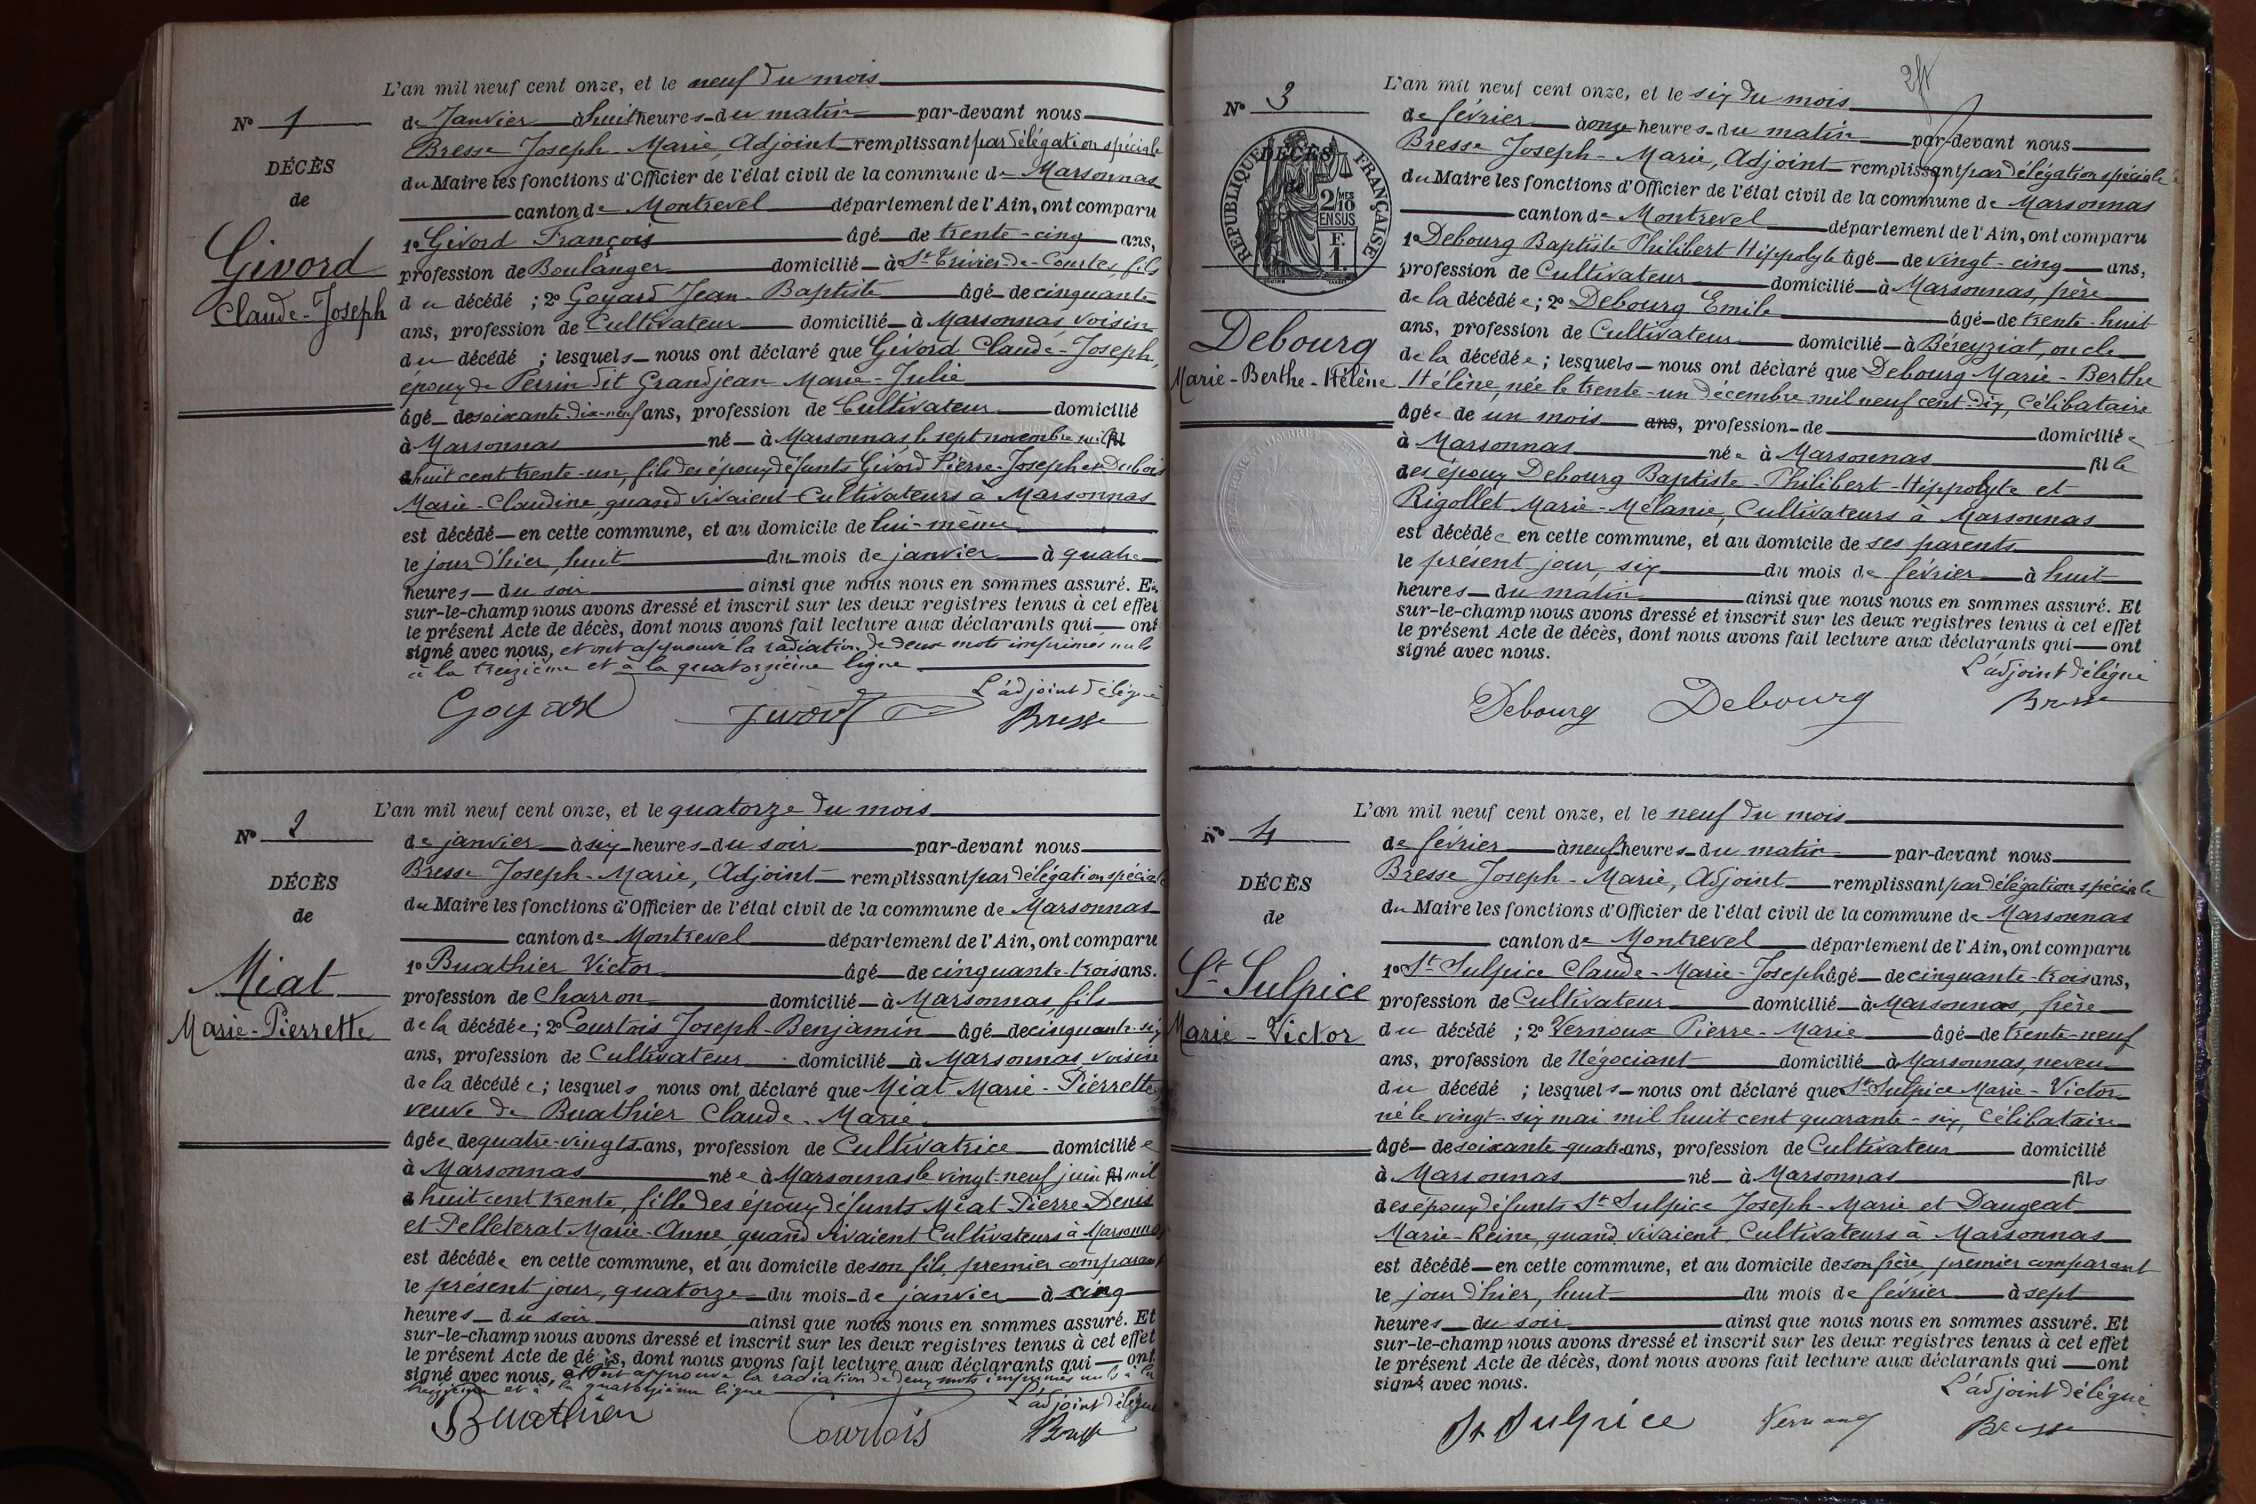 L'an mil neuf cent onze, et le neuf du mois
N° 1
de Janvier à huit heures du matin par-devant nous
Bresse Joseph-Marie, Adjoint remplissant par délégation spéciale
DÉCÈS
du Maire les fonctions d'Officier de l'état civil de la commune de Marsonnas
de
canton de Montrevel département de l'Ain, ont comparu
Givord
Claude-Joseph
1° Givord François âgé de trente-cinq ans,
profession de Boulanger domicilié à St Trivier-de-Courtes, fils
du décédé ; 2° Goyard Jean-Baptiste âgé de cinquante
ans, profession de Cultivateur domicilié à Marsonnas, voisin
du décédé ; lesquels nous ont déclaré que Givord Claude-Joseph,
époux de Perrin dit Grandjean Marie-Julie
âgé de soixante-dix-neuf ans, profession de Cultivateur domicilié
à Marsonnas né à Marsonnas, le sept novembre mil fil
d huit cent trente-un, fils des époux défunts Givord Pierre-Joseph et Dubois
Marie-Claudine, quand vivaient Cultivateurs à Marsonnas
est décédé en cette commune, et au domicile de lui-même
le jour d'hier, huit du mois de janvier à quatre
heures du soir ainsi que nous nous en sommes assuré. Et
sur-le-champ nous avons dressé et inscrit sur les deux registres tenus à cet effet
le présent Acte de décès, dont nous avons fait lecture aux déclarants qui ont
signé avec nous, et ont approuvé la radiation de deux mots imprimés nuls
à la treizième et à la quatorzième ligne
L'adjoint délégué
Goyard Givord Bresse
L'an mil neuf cent onze, et le quatorze du mois
N° 2
de janvier à six heures du soir par-devant nous
Bresse Joseph-Marie, Adjoint remplissant par délégation spéciale
DÉCÈS
du Maire les fonctions d'Officier de l'état civil de la commune de Marsonnas
de
canton de Montrevel département de l'Ain, ont comparu
Miat
Marie-Pierrette
1° Buathier Victor âgé de cinquante-trois ans.
profession de Charron domicilié à Marsonnas, fils
de la décédée ; 2° Courtois Joseph-Benjamin âgé de cinquante-six
ans, profession de Cultivateur domicilié à Marsonnas, voisin
de la décédée ; lesquels nous ont déclaré que Miat Marie-Pierrette,
veuve de Buathier Claude-Marie
âgée de quatre-vingts ans, profession de Cultivatrice domiciliée
à Marsonnas née à Marsonnas le vingt-neuf juin fil mil
d huit cent trente, fille des époux défunts Miat Pierre-Denis
et Pelleterat Marie-Anne, quand vivaient Cultivateurs à Marsonnas
est décédée en cette commune, et au domicile de son fils, premier comparant
le présent jour, quatorze du mois de janvier à cinq
heures du soir ainsi que nous nous en sommes assuré. Et
sur-le-champ nous avons dressé et inscrit sur les deux registres tenus à cet effet
le présent Acte de décès, dont nous avons fait lecture aux déclarants qui ont
signé avec nous, et ont approuvé la radiation de deux mots imprimés nuls à la
treizième et à la quatorzième ligne
L'adjoint délégué
Buathier Courtois Bresse
L'an mil neuf cent onze, et le six du mois
N° 3
de février à onze heures du matin par-devant nous
Bresse Joseph-Marie, Adjoint remplissant par délégation spéciale
DÉCÈS
de
RÉPUBLIQUE FRANÇAISE
2/10MES EN SUS
F. 1.
du Maire les fonctions d'Officier de l'état civil de la commune de Marsonnas
canton de Montrevel département de l'Ain, ont comparu
1° Debourg Baptiste Philibert-Hippolyte âgé de vingt-cinq ans,
profession de Cultivateur domicilié à Marsonnas, père
Debourg
Marie-Berthe-Hélène
de la décédée ; 2° Debourg Emile âgé de trente-huit
ans, profession de Cultivateur domicilié à Béreyziat, oncle
de la décédée ; lesquels nous ont déclaré que Debourg Marie-Berthe
Hélène, née le trente-un décembre mil neuf cent-dix, Célibataire
âgée de un mois ans, profession de domiciliée
à Marsonnas née à Marsonnas fille
des époux Debourg Baptiste-Philibert-Hippolyte et
Rigollet Marie-Mélanie, Cultivateurs à Marsonnas
est décédée en cette commune, et au domicile de ses parents
le présent jour, six du mois de février à huit
heures du matin ainsi que nous nous en sommes assuré. Et
sur-le-champ nous avons dressé et inscrit sur les deux registres tenus à cet effet
le présent Acte de décès, dont nous avons fait lecture aux déclarants qui ont
signé avec nous.
L'adjoint délégué
Debourg Debourg Bresse
L'an mil neuf cent onze, et le neuf du mois
N° 4
de février à neuf heures du matin par-devant nous
Bresse Joseph-Marie, Adjoint remplissant par délégation spéciale
DÉCÈS
du Maire les fonctions d'Officier de l'état civil de la commune de Marsonnas
de
canton de Montrevel département de l'Ain, ont comparu
St Sulpice
Marie-Victor
1° St Sulpice Claude-Marie-Joseph âgé de cinquante-trois ans,
profession de Cultivateur domicilié à Marsonnas, frère
du décédé ; 2° Vernoux Pierre-Marie âgé de trente-neuf
ans, profession de Négociant domicilié à Marsonnas, neveu
du décédé ; lesquels nous ont déclaré que St Sulpice Marie-Victor
né le vingt-six mai mil huit cent quarante-six, Célibataire
âgé de soixante-quatre ans, profession de Cultivateur domicilié
à Marsonnas né à Marsonnas fils
des époux défunts St Sulpice Joseph-Marie et Daugeat
Marie-Reine, quand vivaient, Cultivateurs à Marsonnas
est décédé en cette commune, et au domicile de son frère, premier comparant
le jour d'hier, huit du mois de février à sept
heures du soir ainsi que nous nous en sommes assuré. Et
sur-le-champ nous avons dressé et inscrit sur les deux registres tenus à cet effet
le présent Acte de décès, dont nous avons fait lecture aux déclarants qui ont
signé avec nous.
L'adjoint délégué
St Sulpice Vernoux Bresse